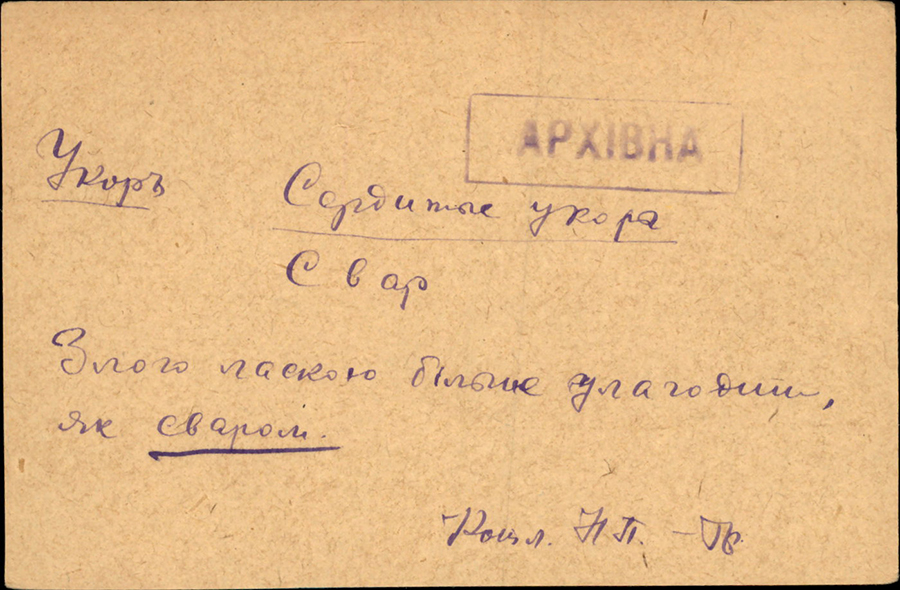 АРХІВНА
Укоръ
Сердитые укора
Свар
Злого ласкою більше улагодиш,
як сваром.
Коцл. НП. –